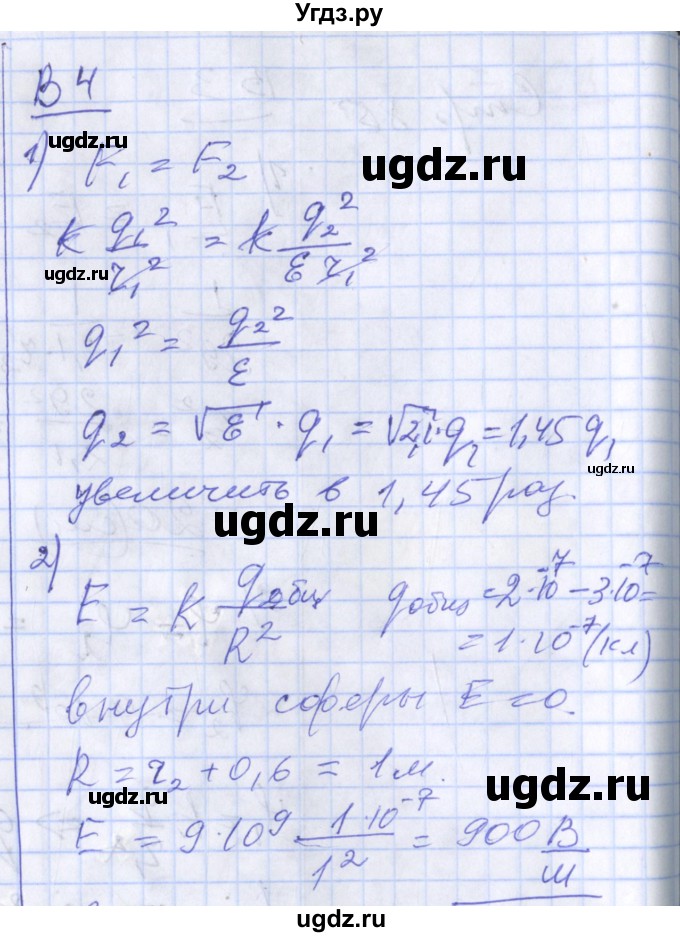 Угдз.ру
В 4
ugdz.ru
1) F₁ = F₂
ugdz.ru
k q₁²/r₁² = k q₂²/(ε r₁²)
ugdz.ru
q₁² = q₂²/ε
q₂ = √ε · q₁ = √2,1 · q₁ = 1,45 q₁
ugdz.ru
увеличить в 1,45 раз.
ugdz.ru
2)
E = k qобщ/R² qобщ = 2·10⁻⁷ – 3·10⁻⁷ =
= 1·10⁻⁷ (кл)
ugdz.ru
внутри сферы E = 0.
ugdz.ru
R = r₂ + 0,6 = 1м.
ugdz.ru
E = 9·10⁹ · 1·10⁻⁷/1² = 900 В/м
ugdz.ru
ugdz.ru